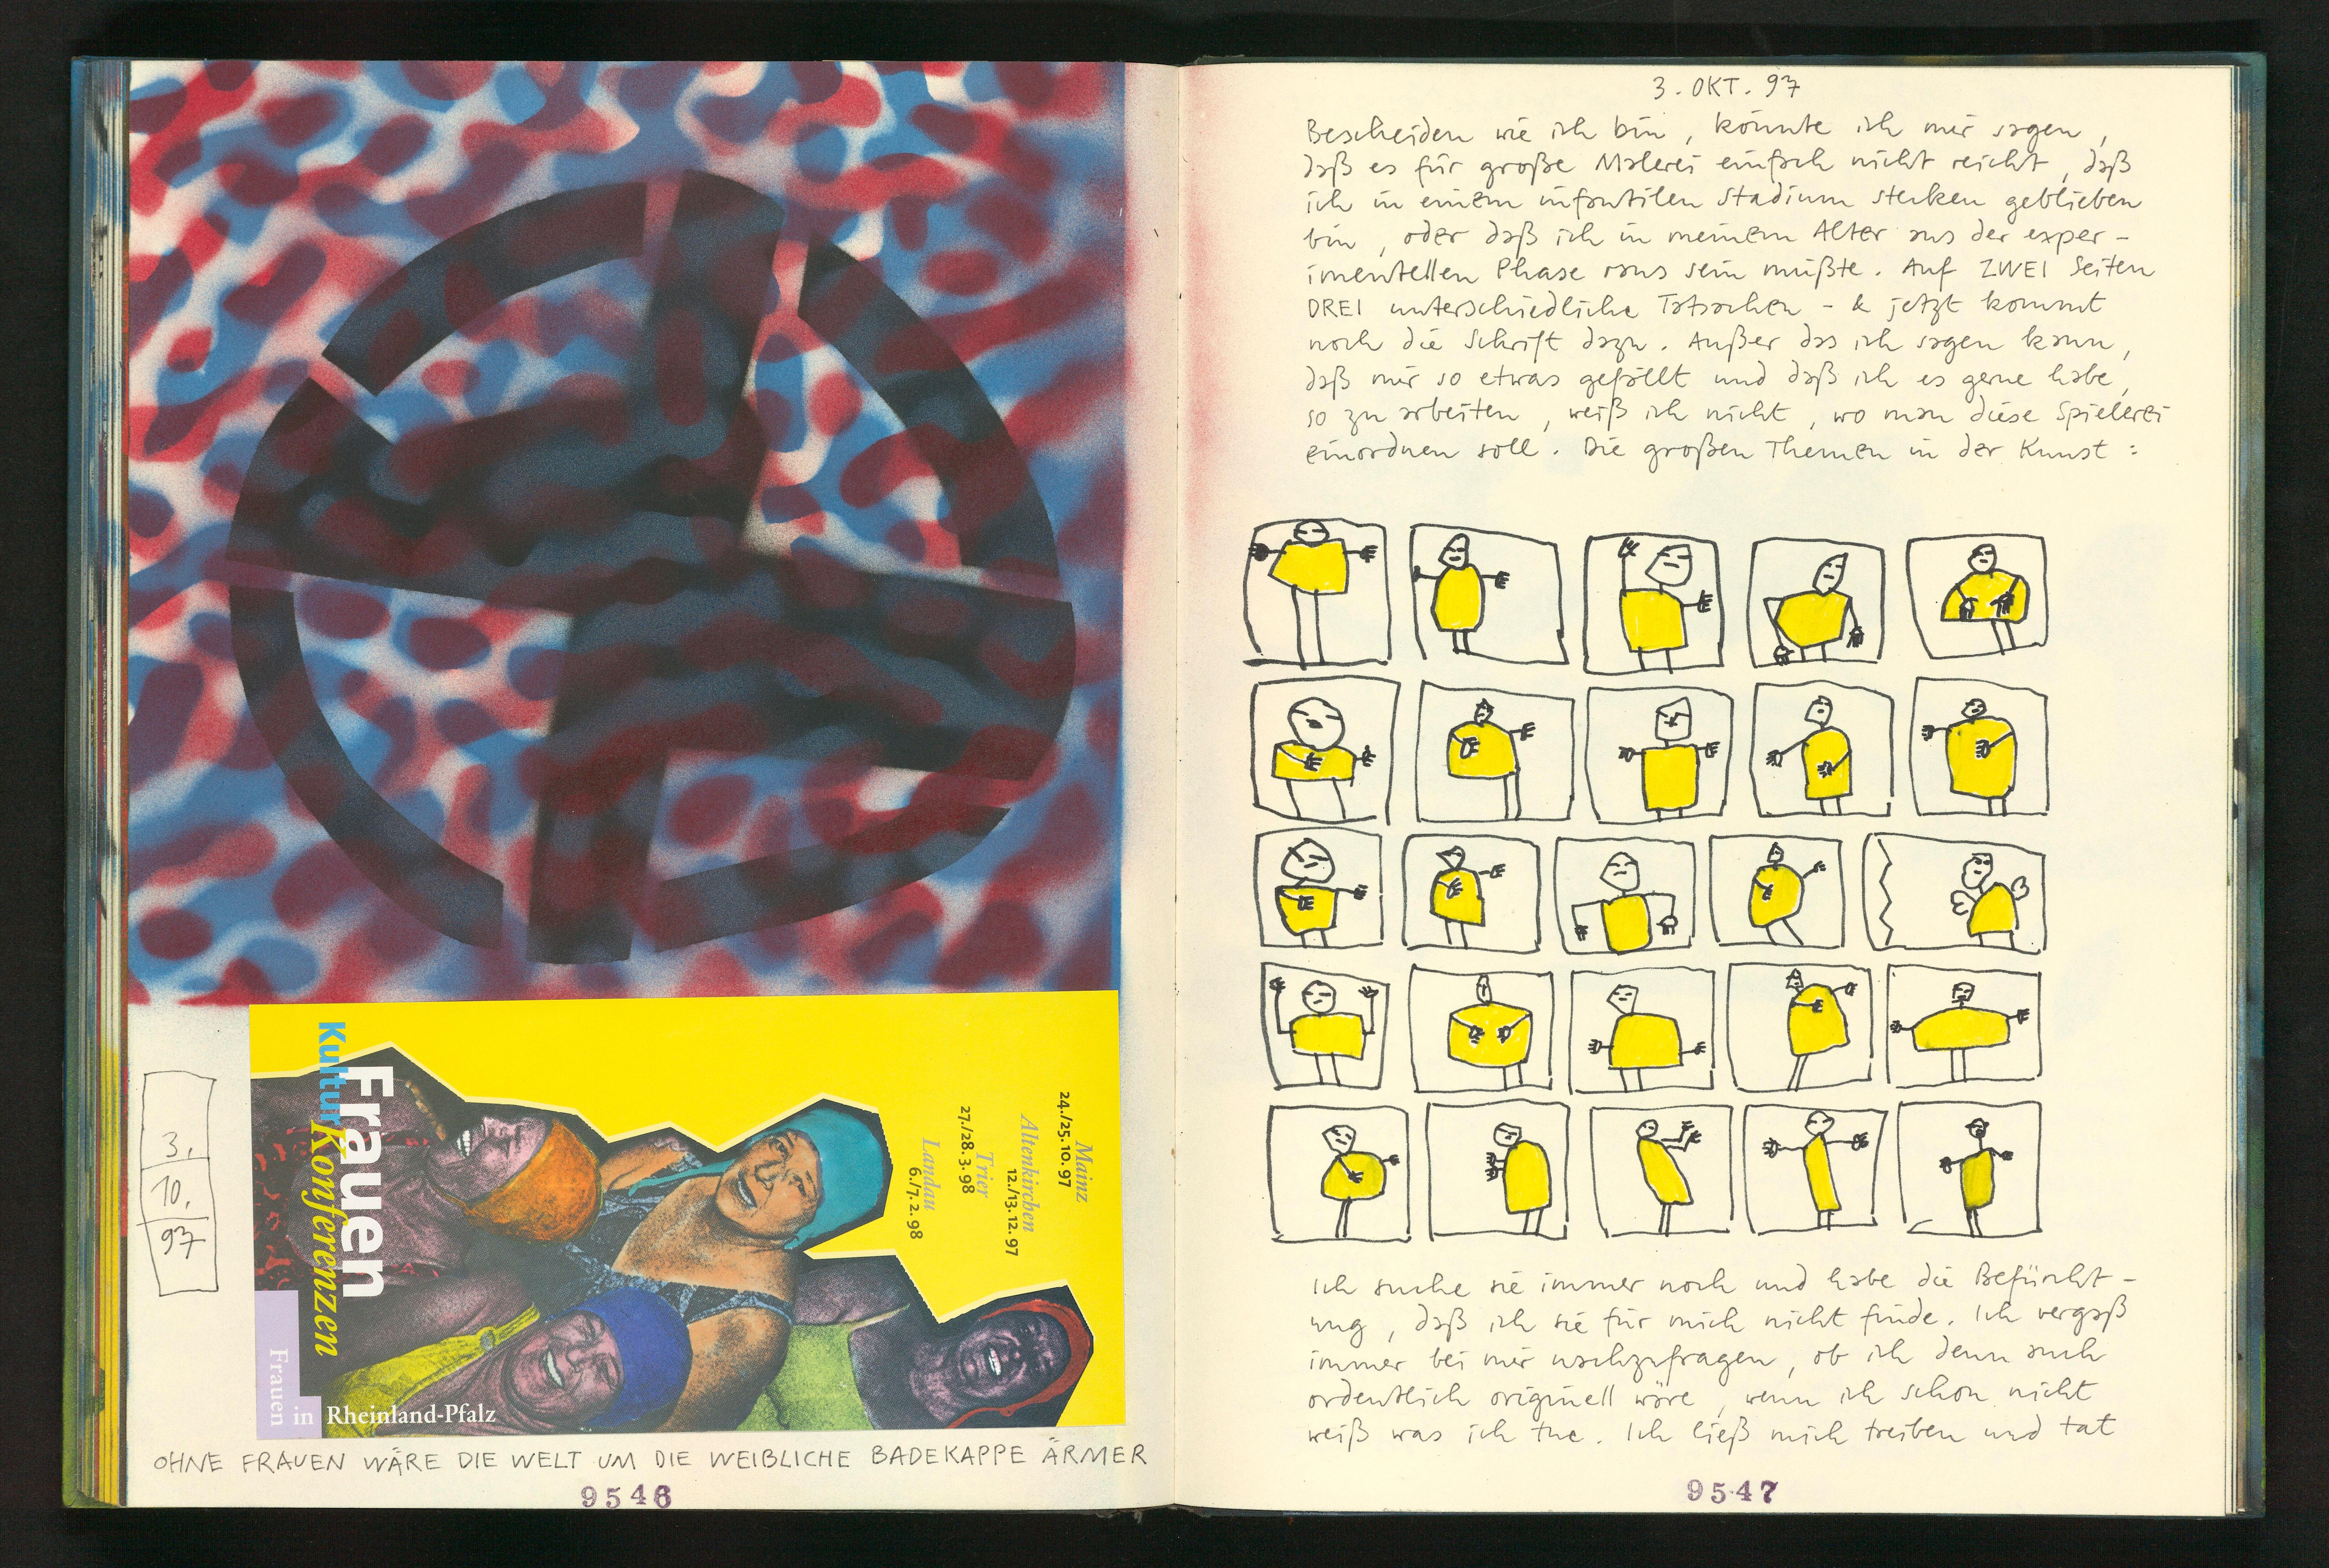 Frauen
Kulturkonferenzen
Frauen in Rheinland-Pfalz
Mainz
24./25.10.97
Altenkirchen
12./13.12.97
Trier
27./28.3.98
Landau
6./7.2.98
3.
10.
97
OHNE FRAUEN WÄRE DIE WELT UM DIE WEIBLICHE BADEKAPPE ÄRMER
9546
3. OKT. 97
Bescheiden wie ich bin, könnte ich mir sagen,
daß es für große Malerei einfach nicht reicht, daß
ich in einem infantilen Stadium stecken geblieben
bin, oder daß ich in meinem Alter aus der exper-
imentellen Phase raus sein müßte. Auf ZWEI Seiten
DREI unterschiedliche Tatsachen - & jetzt kommt
noch die Schrift dazu. Außer das ich sagen kann,
daß mir so etwas gefällt und daß ich es gerne habe,
so zu arbeiten, weiß ich nicht, wo man diese Spielerei
einordnen soll. Die großen Themen in der Kunst:
Ich suche sie immer noch und habe die Befürcht-
ung, daß ich sie für mich nicht finde. Ich vergaß
immer bei mir nachzufragen, ob ich denn auch
ordentlich originell wäre, wenn ich schon nicht
weiß was ich tue. Ich ließ mich treiben und tat
9547